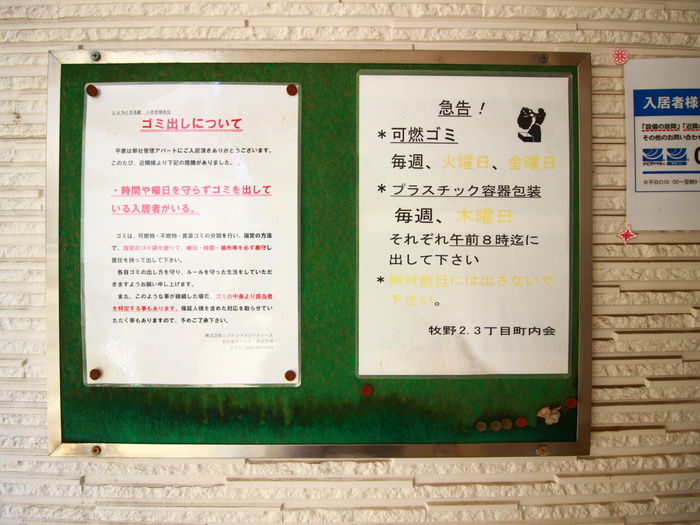 ゴミ出しについて
平素は弊社管理アパートにご入居頂きありがとうございます。
このたび、近隣様より下記の指摘がありました。
・時間や曜日を守らずゴミを出して
いる入居者がいる。
ゴミは、可燃物・不燃物・資源ゴミの分別を行い、指定の方法
で、指定のゴミ袋を使って、曜日・時間・場所等を必ず厳守し
責任を持って出して下さい。
各自ゴミの出し方を守り、ルールを守った生活をしていただ
きますようお願い申し上げます。
また、このような事が継続した場合、ゴミの中身より該当者
を特定する事もあります。保証人様を含めた対応を取らせてい
ただく事もありますので、予めご了承下さい。
急告！
*可燃ゴミ
毎週、火曜日、金曜日
*プラスチック容器包装
毎週、木曜日
それぞれ午前８時迄に
出して下さい
*絶対前日には出さないで
下さい。
牧野２.３丁目町内会
入居者様
「設備の故障」「近隣
その他のお問い合わせ
ナビダイヤル